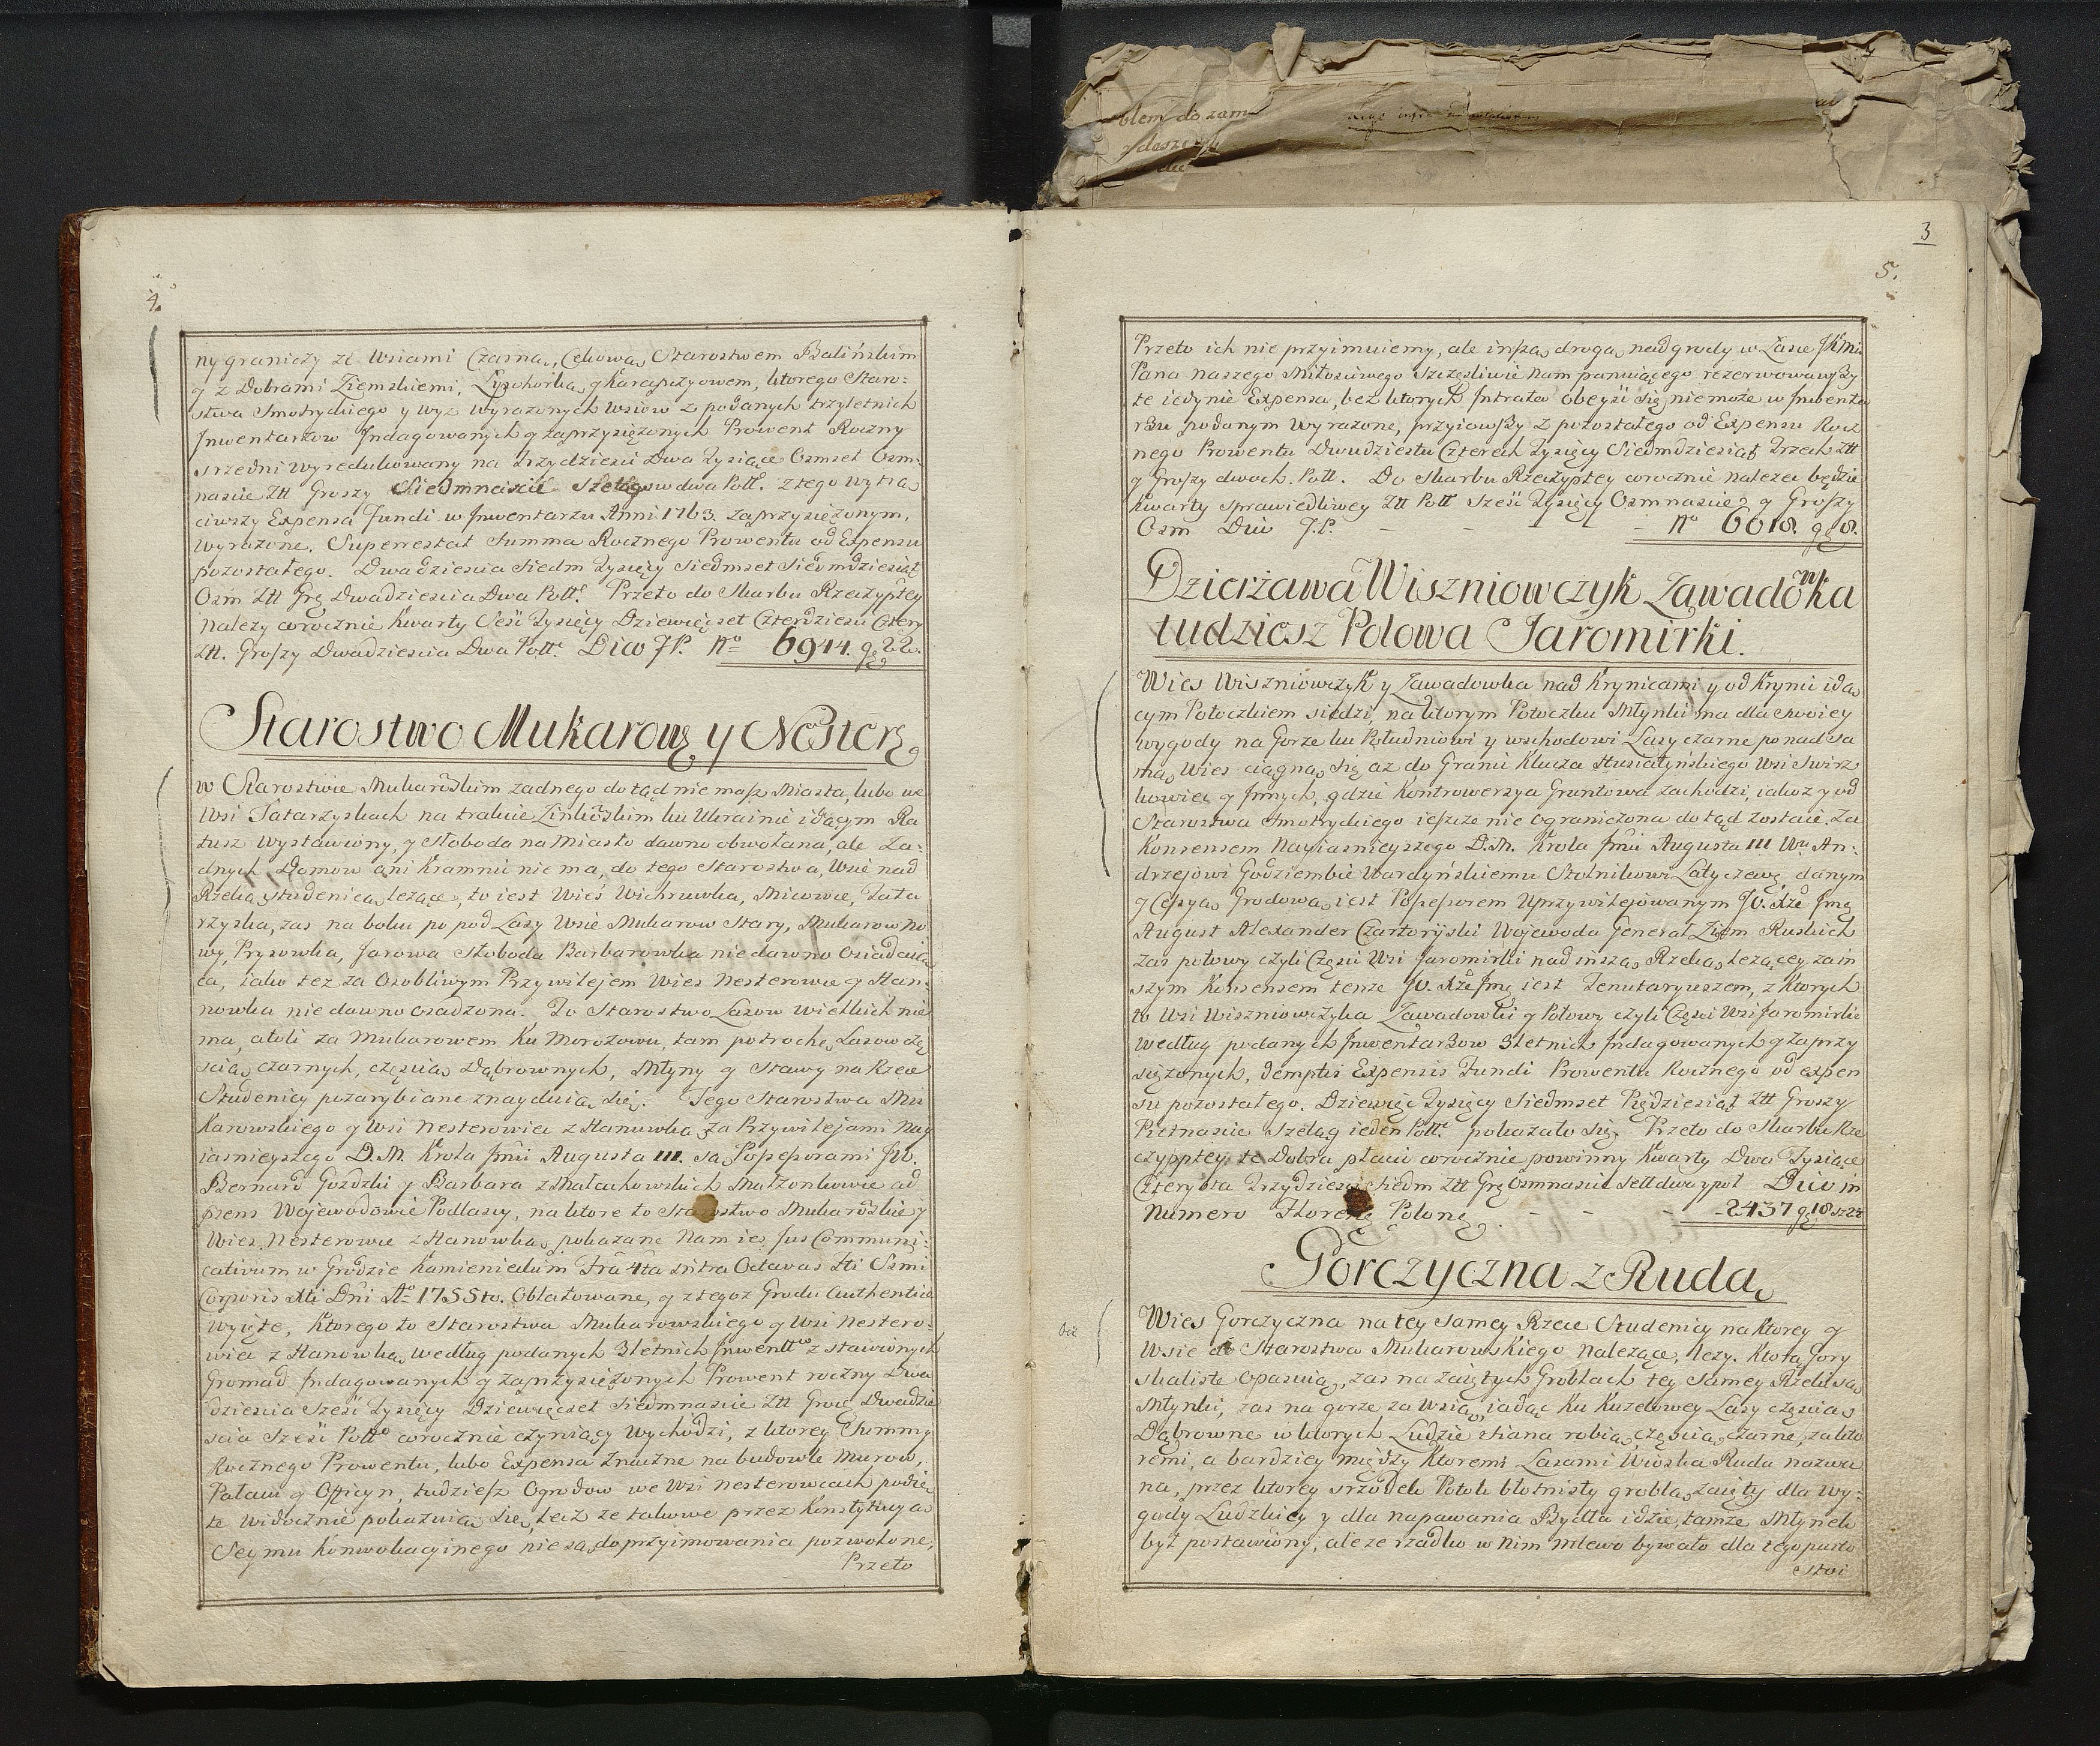 4.
ny graniczy ze Wsiami Czarną, Cehową, Starostwem Balińskim
y z Dobrami Ziemskiemi, Łyschorką y Karapczyowem, ktorego Staro:
stwa Smotryckiego y wyz wyrazonych Wsiow z podanych trzyletnich
Jnwentarzow Jndagowanych y zaprzysiężonych Prowent Roczny
srzedni wyredukowany na trzydziesci Dwa Tysiące Osmset Osm:
nascie Ztt Groszy Siedmnascie Szelągow dwa Poll. z tego wytrą
ciwszy Expensa Fundi w Jnwentarzu Anni 1763. zaprzysiężonym,
wyrazone, Superrestat Summa Rocznego Prowentu od Expensu
pozostałego. Dwadziescia Siedm Tysięcy Siedmset Siedmdziesiąt
Osm Ztt Grz Dwadziescia Dwa Poll. Przeto do Skarbu Rzeczyptey
Nalezy corocznie Kwarty Sesć Tysięcy Dziewięcset Czterdziesci Cztery
Ztt. Groszy Dwadziescia Dwa Poll. Dico fl. No 6944. gr 22.
Starostwo Mukarow y Nester
w Starostwie Mukarowskim zadnego dotąd nie masz Miasta, lubo we
Wsi Tatarzyskach na trakcie Zinkowskim ku Ukrainie idącym Ra
tusz Wystawiony, y Słoboda na Miasto dawno obwołana, ale Za:
dnych Domow ani Kramnic nie ma, do tego Starostwa, Wsie nad
Rzeką Studenicą lezące, to iest Wieś Wichrowka, Micowce, Tata
rzyska, zas na boku po pod Lasy Wsie Mukarow Stary, Mukarow No
wy, Prysowka, Jarowa Słoboda Barbarowka nie dawno Osiadaią
ca, iako tez za Osobliwym Przywilejem Wies Nesterowce y Han:
nowka nie dawno osadzona. To Starostwo Lasow wielkich nie
ma, atoli za Mukarowem ku Morozowu, tam potrochę Lasow czę
scią czarnych, częscią Dąbrownych, Młyny y Stawy na Rzece
Studenicy pozarybiane znayduią się. Tego Starostwa Mu
karowskiego y Wsi Nesterowiec z Hanuwką za Przywilejami Nay
iasnieyszego D. M. Krola Jmci Augusta III. są Possessorami JW.
Bernard Gozdzki y Barbara z Małachowskich Małzonkowie ad
psens Wojewodowie Podlascy, na ktore to Starostwo Mukarowskie y
Wies Nesterowce z Hanowką pokazane Nam ies Jus Communi:
cativum w Grodzie Kamienieckim Fra 4ta intra Octavas Sti Ssmi
Corporis Xti Dni Ao 1755to. Oblatowane, y z tegoz Grodu Authentice
wyięte, ktorego to Starostwa Mukarowskiego y Wsi Nestero:
wiec z Hanowką według podanych 3letnich Jnwentt. z stawionych
Gromad Jndagowanych y zaprzysiężonych Prowent roczny Dwa
dziescia Szesć Tysięcy Dziewięcset Siedmnascie Ztt Groszy Dwadzie
scia Szesć Poll. corocznie czyniący wychodzi, z ktorey Summy
Rocznego Prowentu, lubo Expensa Znaczne na budowle Murow,
Pałacu y Officyn, tudziesz Ogrodow we Wsi Nesterowcach podię
te widocznie pokazuią się, lecz ze takowe przez Konstytucyą
Seymu Konwokacyinego nie są do przyimowania pozwolone,
Przeto
3
5.
Przeto ich nie przyimuiemy, ale inszą drogą nadgrody w Łasce JKMci
Pana naszego Miłosciwego szczęsliwie nam panuiącego rezerwowawszy
te iedynie Expensa, bez ktorych Jntrata obeyść się nie może w Jnwenta
rzu podanym wyrazone, przyiowszy z pozostałego od Expensu Rocz
nego Prowentu Dwudziestu Czterech Tysięcy Siedmdziesiąt Trzech Ztt
y Groszy dwoch Poll. Do Skarbu Rzeczyptey corocznie nalezec będzie
Kwarty sprawiedliwey Ztt Poll Szesć Tysięcy Osmnascie y Groszy
Osm Dico fl. — — — No 6018. gr 8.
Dzierżawa Wiszniowczyk Zawadowka
tudziesz Połowa Jaromirki.
Wies Wiszniowczyk y Zawadowka nad Krynicami y od Krynic idą
cym Potoczkiem siedzi, na ktorym Potoczku Młynki ma dla swoiey
wygody na Gorze ku Południowi y wschodowi Lasy czarne ponad sa
mą Wies ciągną się az do Granic Klucza Husiatyńskiego Wsi Swirz
kowiec y Jnnych, gdzie Kontrowersya Gruntowa zachodzi, iakoz y od
Starostwa Smotryckiego ieszcze nie ograniczona dotąd zostaie. Za
Konsensem Nayiasnieyszego D. M. Krola Jmci Augusta III Wu An:
drzejowi Godziembie Wardyńskiemu Stolnikowi Latyczewu, danym
y Cessyą Grodową iest Possessorem Uprzywilejowanym JO. Xże Jmę
August Alexander Czartoryski Wojewoda Generał Ziem Ruskich
zas połowy czyli Części Wsi Jaromirki nad inszą Rzeką lezącey za in
szym Konsensem tenze JO. Xże Jmę iest Tenutaryuszem, z ktorych
to Wsi Wiszniowczyka Zawadowki y Połowy czyli Części Wsi Jaromirki
według podanych Jnwentarzow 3letnich Jndagowanych y zaprzy
siężonych, demptis Expensis Fundi Prowentu Rocznego od expen
su pozostałego. Dziewięc Tysięcy Siedmset Piędziesiąt Ztt Groszy
Piętnascie szeląg ieden Poll. pokazało się. Przeto do Skarbu Rze
czypptey te Dobra płacic corocznie powinny Kwarty Dwa Tysiące
Czterysta Trzydziesci Siedm Ztt Grz Osmnascie szell dwa y poł Dico in
Numero Floreny Polony. — — — 2437 gr 18 sz 2½
Gorczyczna z Rudą
Wies Gorczyczna na tey samey Rzece Studenicy na ktorey y
Wsie do Starostwa Mukarowskiego nalezące, lezy. Ktorą Gory
skaliste opasuią, zas na zaiętych Groblach tey samey Rzeki są
Młynki, zas na gorze za Wsią iadąc ku Kuzelowey Lasy częscią
Dąbrowne w ktorych Ludzie siana robią, częscią czarne, za kto
remi, a bardziey między ktoremi Lasami Wioska Ruda nazwa
na, przez ktorey srzodek Potok błotnisty groblą zaięty dla wy:
gody Ludzkiey y dla napawania Bydła idzie, tamze Młynek
był postawiony, ale ze rzadko w nim mlewo bywało dla tego pusto
stoi